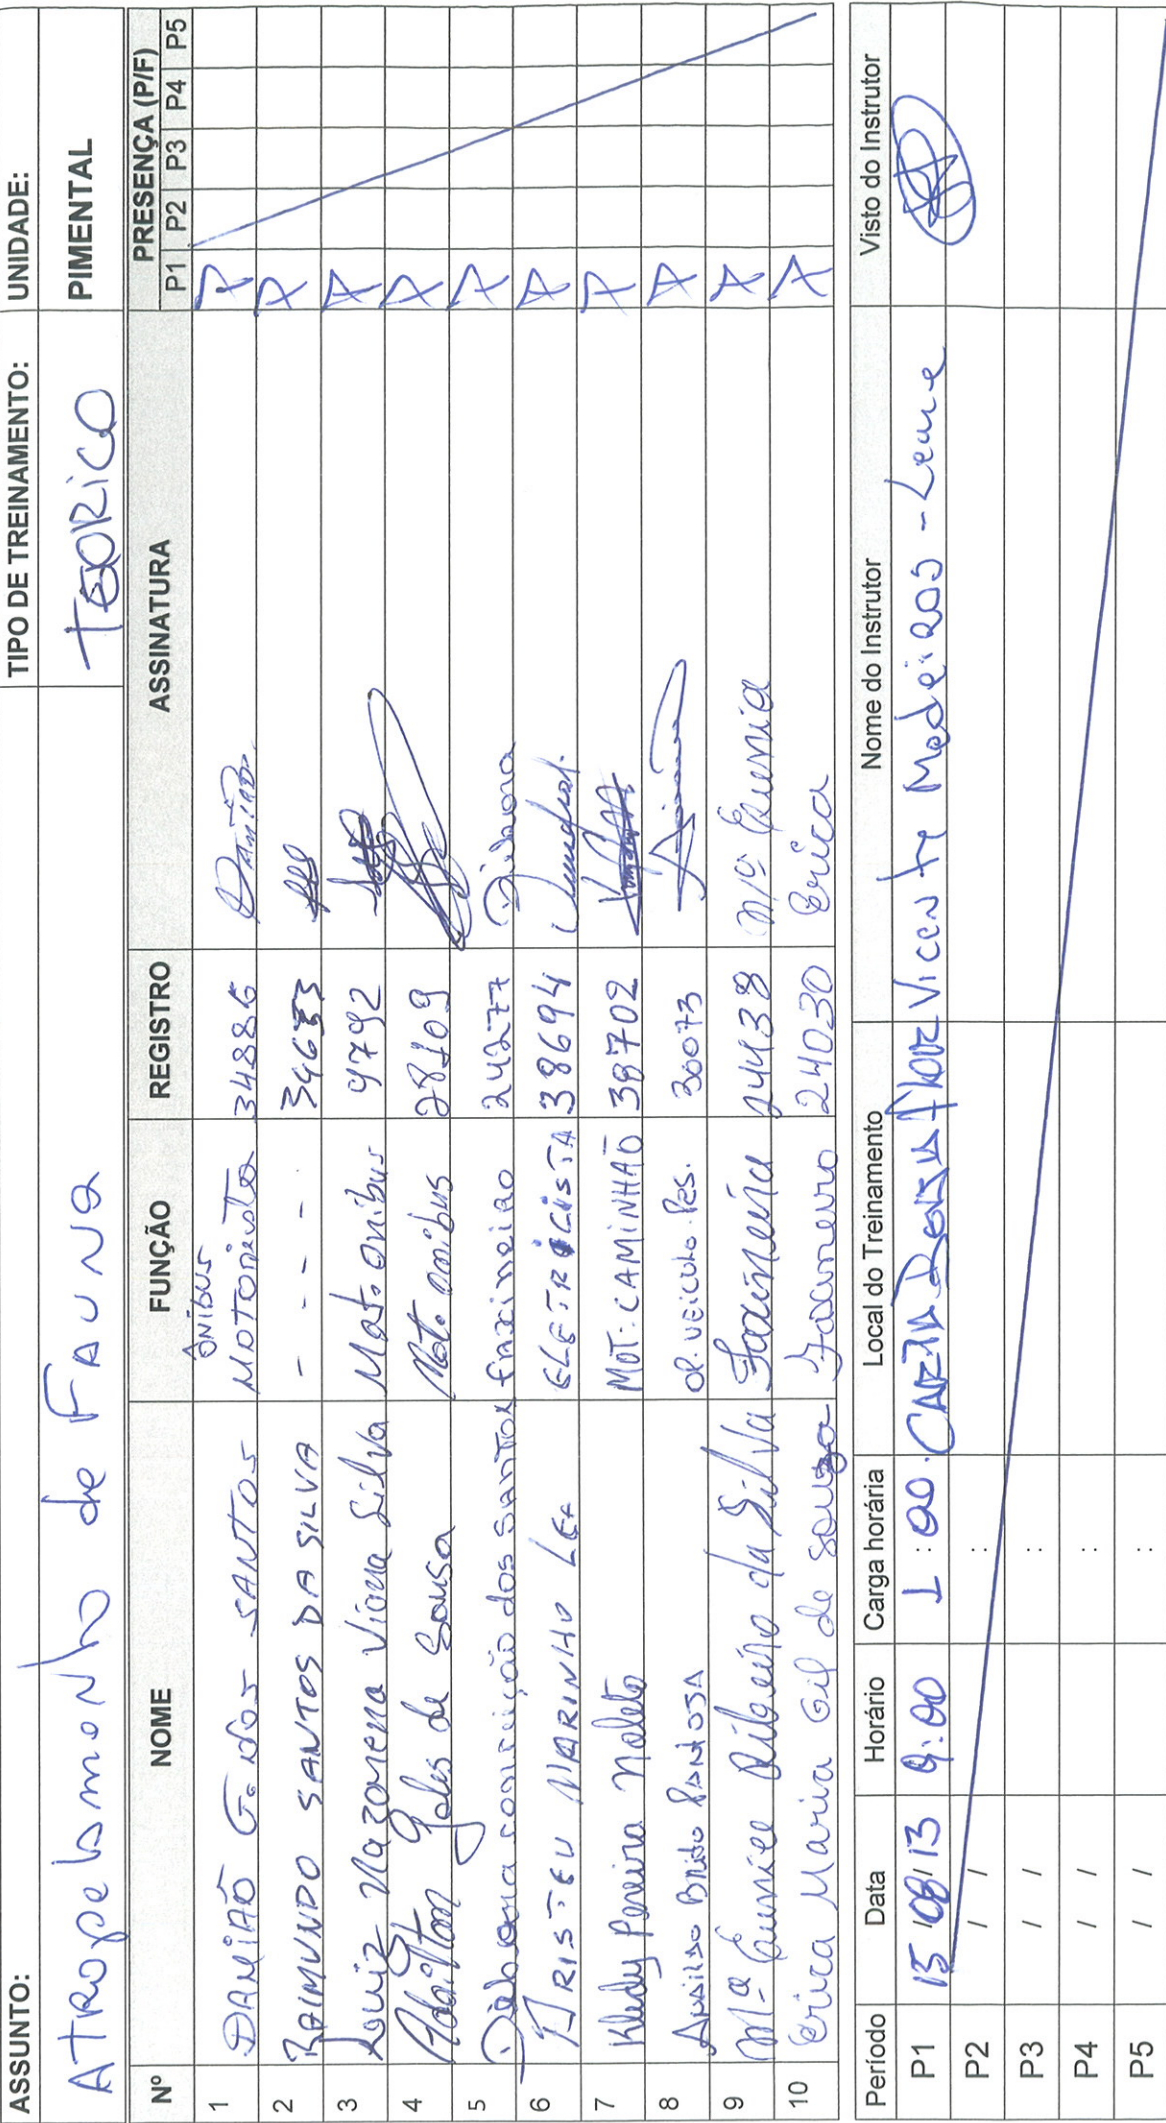 ASSUNTO: TIPO DE TREINAMENTO: UNIDADE:
Atropelamento de Fauna TEORICO PIMENTAL
Nº NOME FUNÇÃO REGISTRO ASSINATURA PRESENÇA (P/F)
P1 P2 P3 P4 P5
1 DAMIÃO G. dos SANTOS Ônibus Motorista 34886 DAMIÃO
2 RAIMUNDO SANTOS DA SILVA - - - - 34633
3 Luiz Mazonena Viana Silva Mot. onibus 9792
4 Adailton Gales de Sousa Mot. onibus 28109
5 conceição dos Santos faxineiro 24277
6 ARISTEU MARINHO ELETRICISTA 38694
7 Kledy Pereira Noleto MOT. CAMINHÃO 38702
8 Brito PANTOJA OP. VEICULO. PES. 30073
9 Mª Eunice Ribeiro da Silva Faxineira 24438 Mª Eunice
10 Erica Maria Gil de Souza Faxineiro 24030 Erica
Período Data Horário Carga horária Local do Treinamento Nome do Instrutor Visto do Instrutor
P1 15/08/13 9:00 1:00 Vicente Medeiros - Leme
P2 / / :
P3 / / :
P4 / / :
P5 / / :